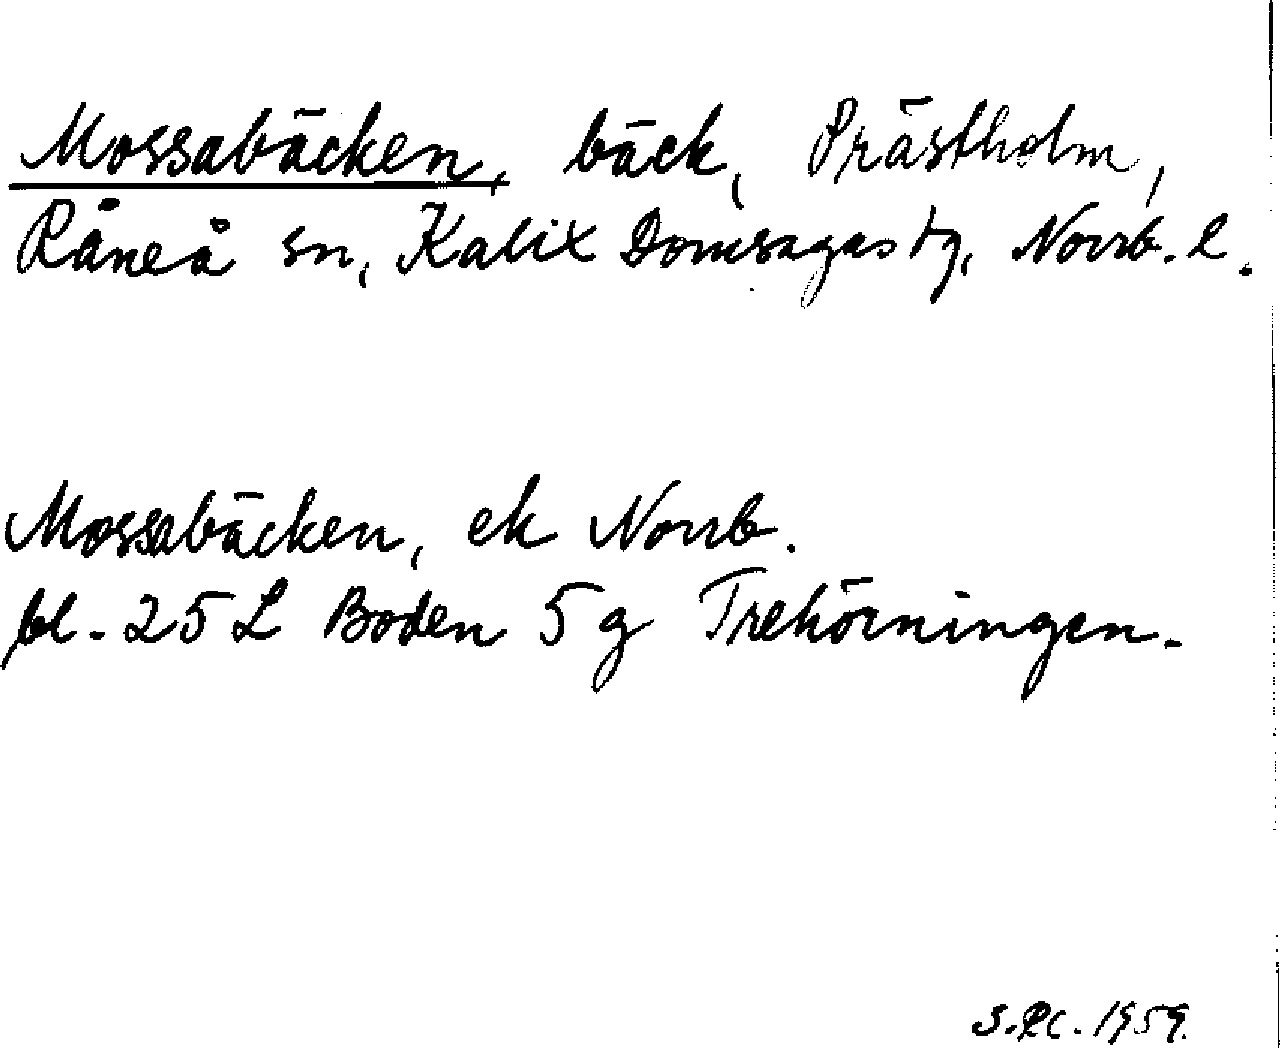 Mossabäcken, bäck, Prästholm,
Råneå sn, Kalix Domsagas tg, Norrb. l.
Mossabäcken, ek Norrb.
bl. 25 L Boden 5 g Trehörningen.
S.RC. 1959.